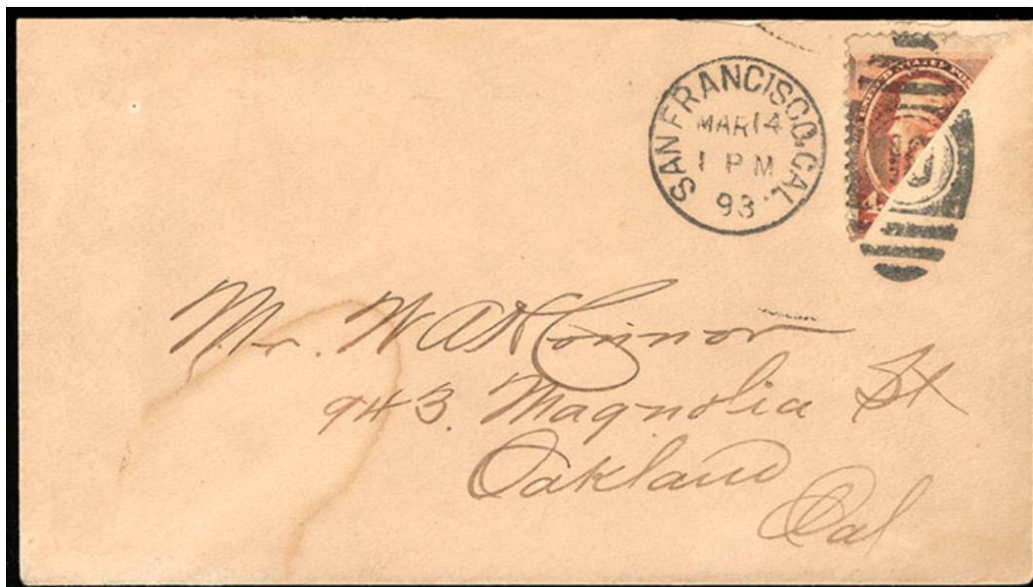 SAN FRANCISCO, CAL.
MAR 14
1 P M
93.
Mr. W
Connor
943. Magnolia St
Oakland
Cal